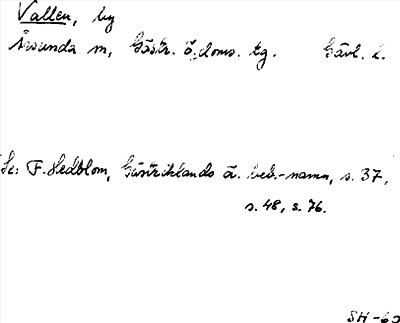 Vallen, by
Årsunda sn, Gästr. ö. doms. tg. Gävl. l.
Se: F. Hedblom, Gästriklands ä. beb.-namn, s. 37,
s. 48, s. 76.
SH-60